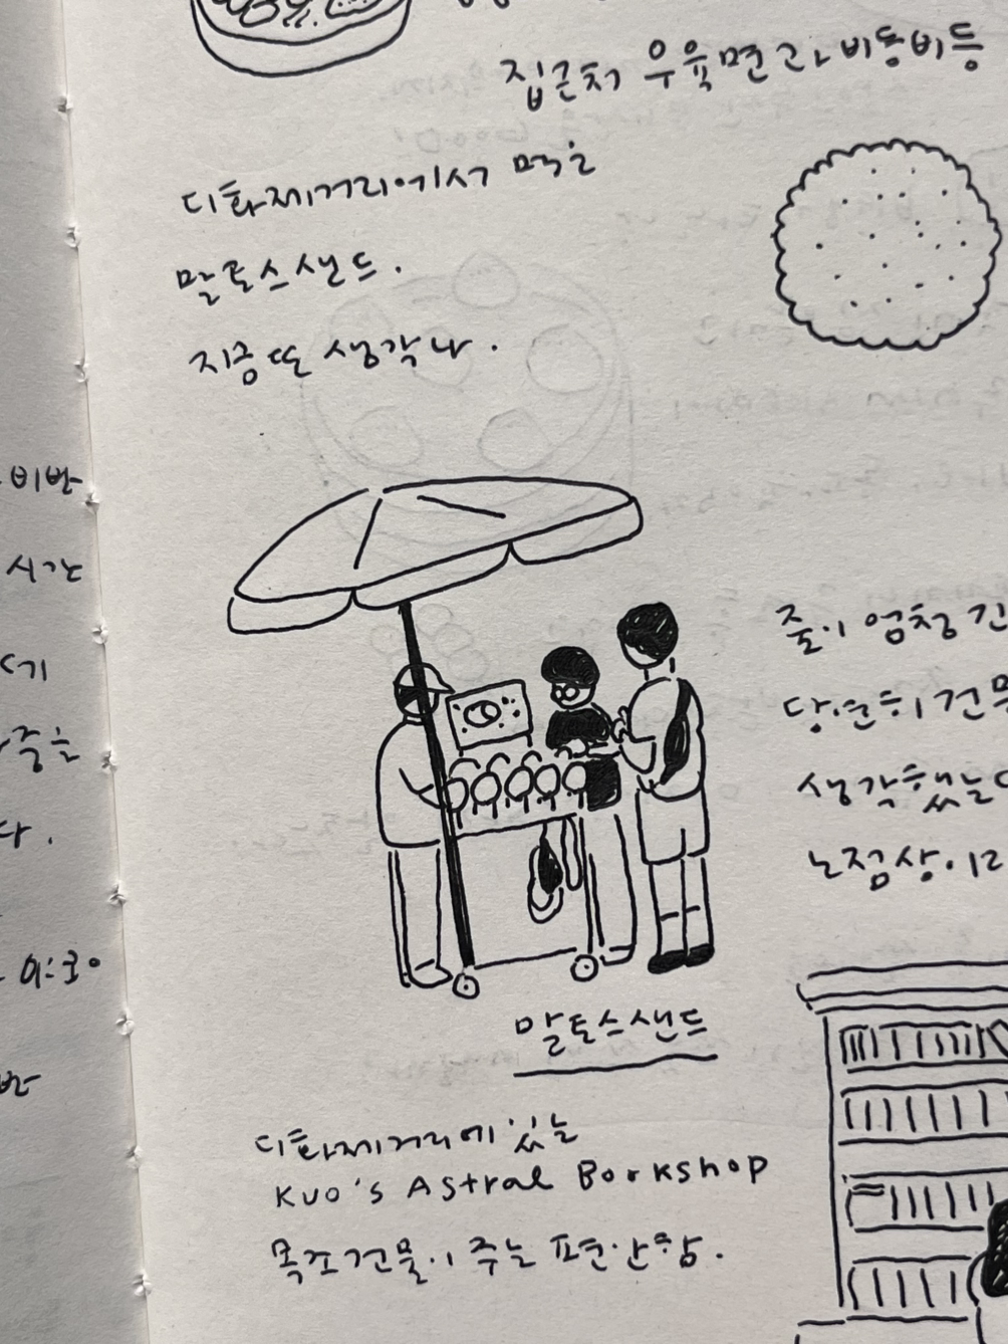 집근처 우육면과 비등비등
디화제거리에서 먹은
말토스샌드.
지금 또 생각나.
비반
시간
기
다.
줄이 엄청 긴
당연히 건물
생각했는데
노점상이라
말토스샌드
디화제거리에 있는
Kuo's Astral Bookshop
목조건물이 주는 편안함.